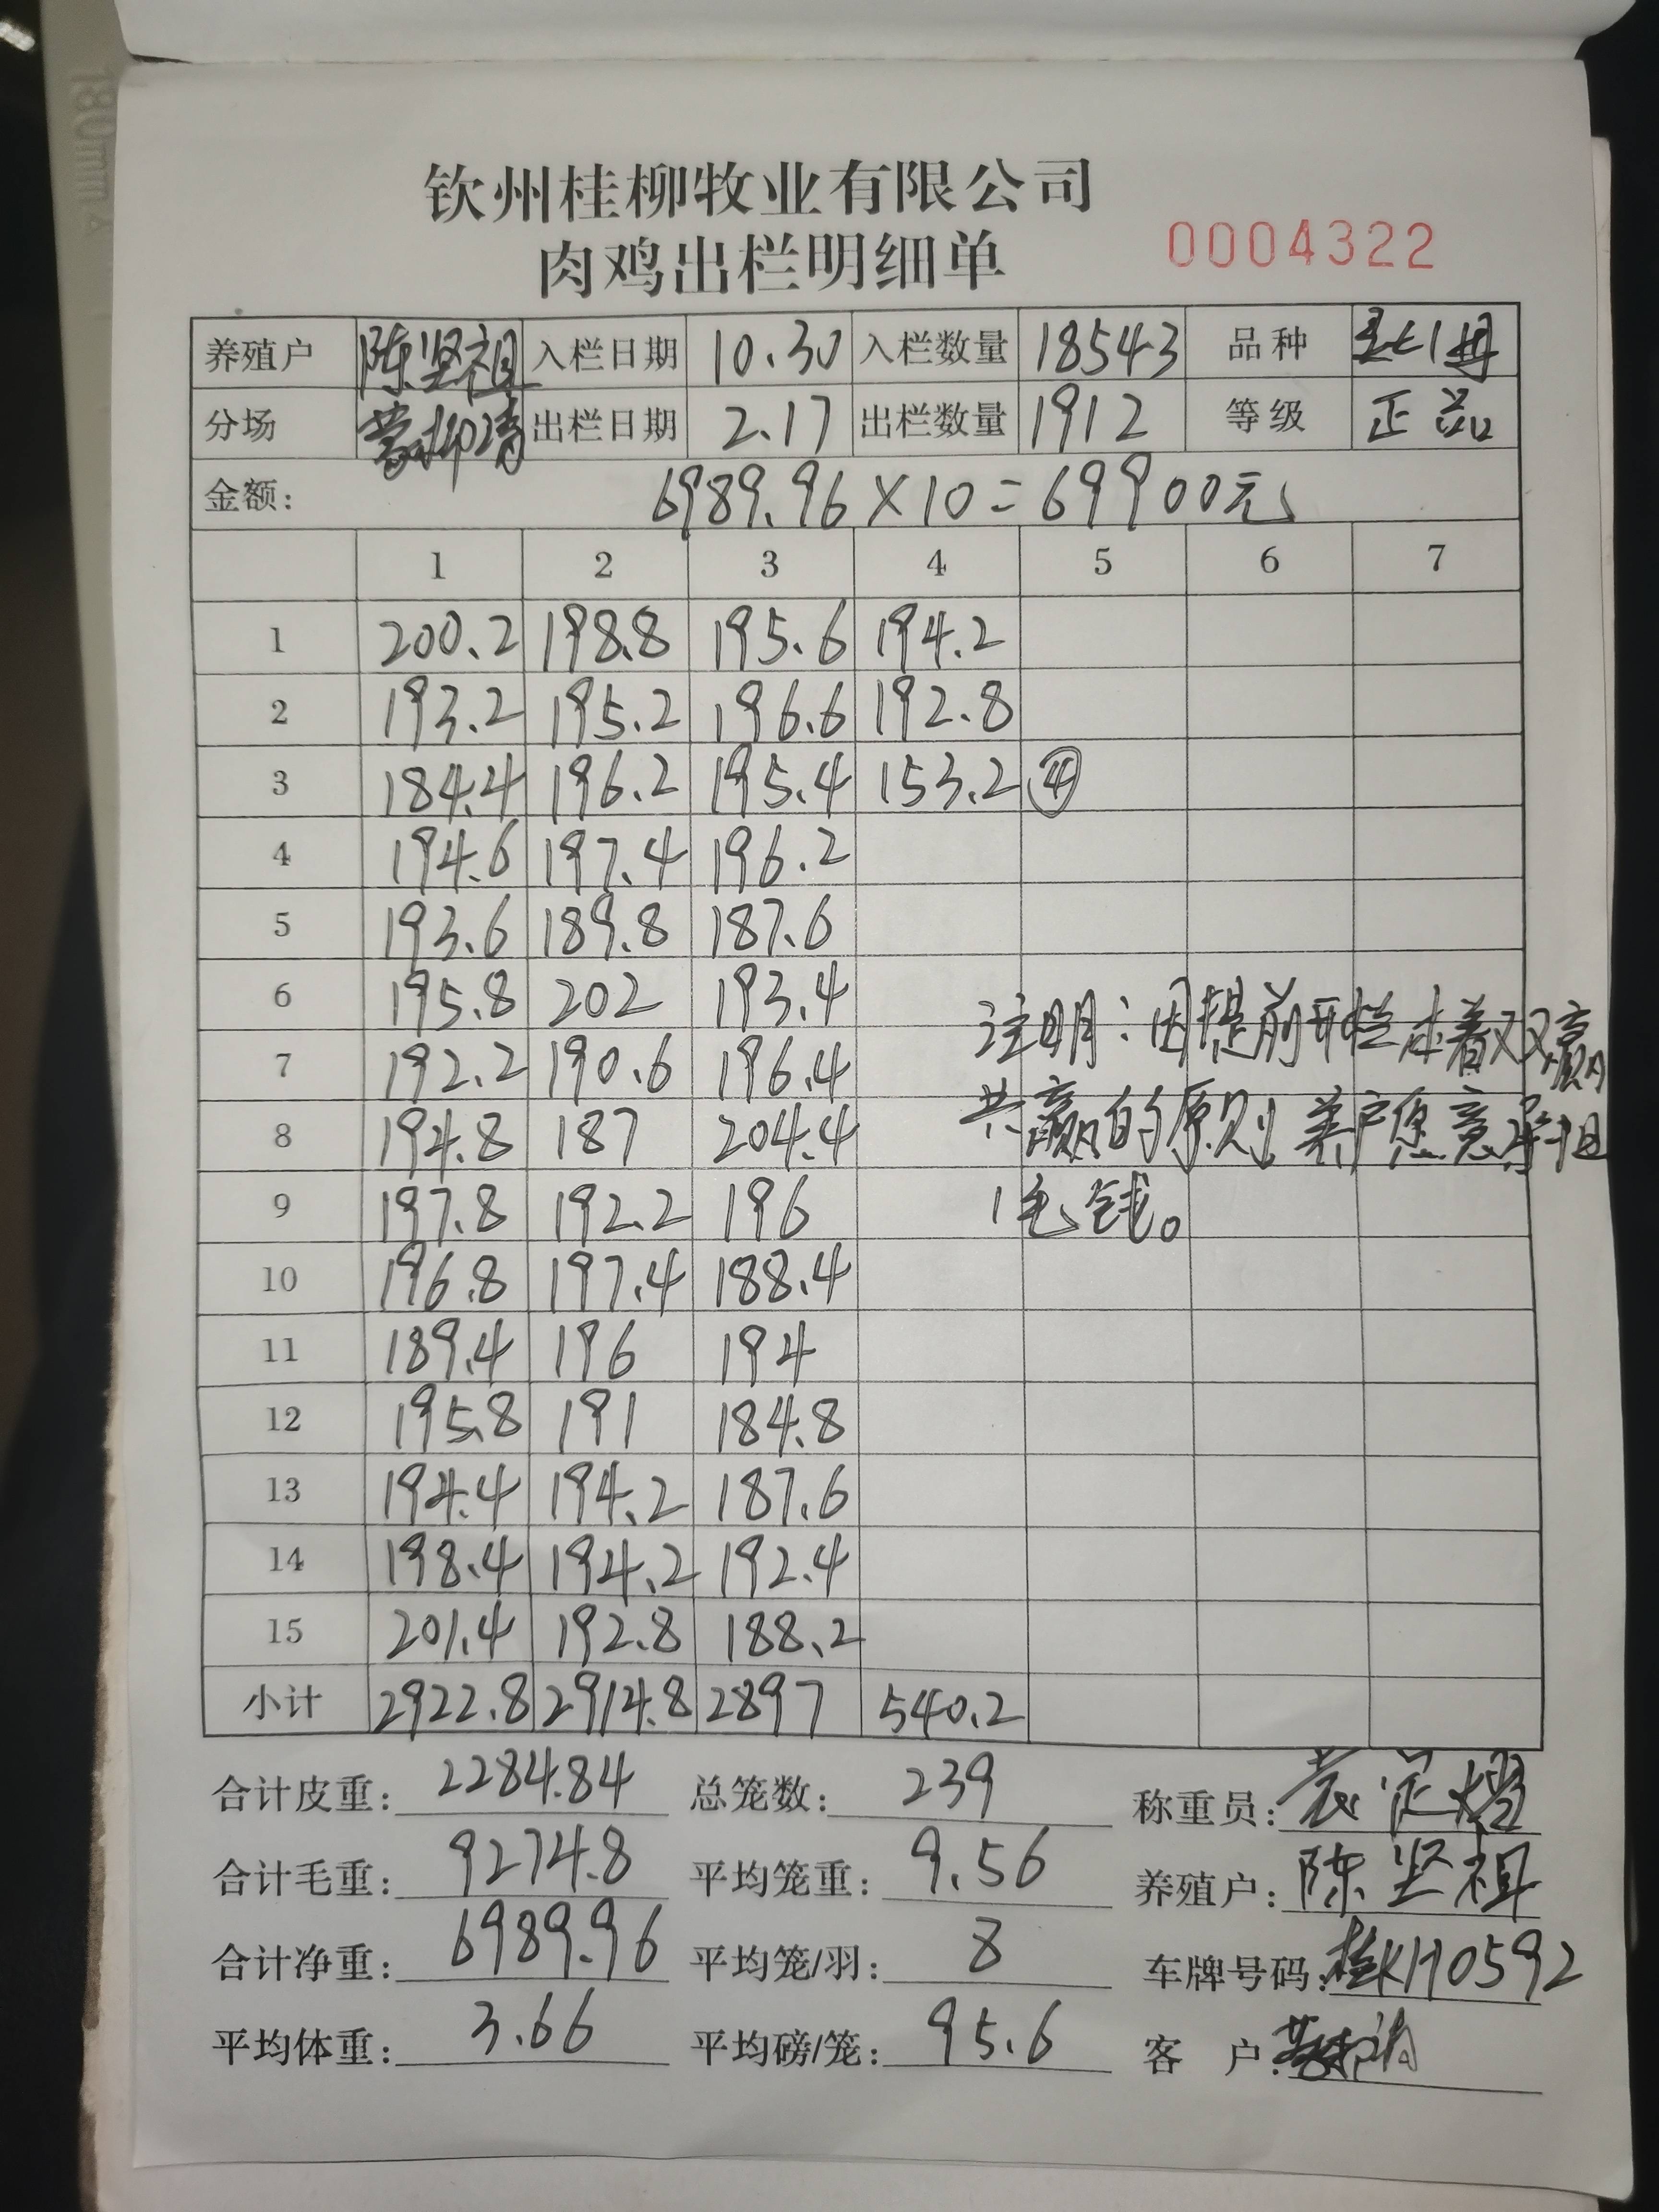 180mm
钦州桂柳牧业有限公司
肉鸡出栏明细单 0004322
养殖户 陈坚祖 入栏日期 10.30 入栏数量 18543 品种
分场 出栏日期 2.17 出栏数量 1912 等级 正品
金额: 6989.96×10=69900元
1 2 3 4 5 6 7
1 200.2 198.8 195.6 194.2
2 193.2 195.2 196.6 192.8
3 184.4 196.2 195.4 153.2 ④
4 194.6 197.4 196.2
5 193.6 189.8 187.6
6 195.8 202 193.4
7 192.2 190.6 196.4
8 194.8 187 204.4
9 197.8 192.2 196
10 196.8 197.4 188.4
11 189.4 196 194
12 195.8 191 184.8
13 194.4 194.2 187.6
14 198.4 194.2 192.4
15 201.4 192.8 188.2
注明:因提前开栏本着双赢
共赢的原则 养户愿意承担
1毛钱。
小计 2922.8 2914.8 2897 540.2
合计皮重: 2284.84 总笼数: 239 称重员:
合计毛重: 9274.8 平均笼重: 9.56 养殖户: 陈坚祖
合计净重: 6989.96 平均笼/羽: 8 车牌号码: 桂KH0592
平均体重: 3.66 平均磅/笼: 95.6 客 户: